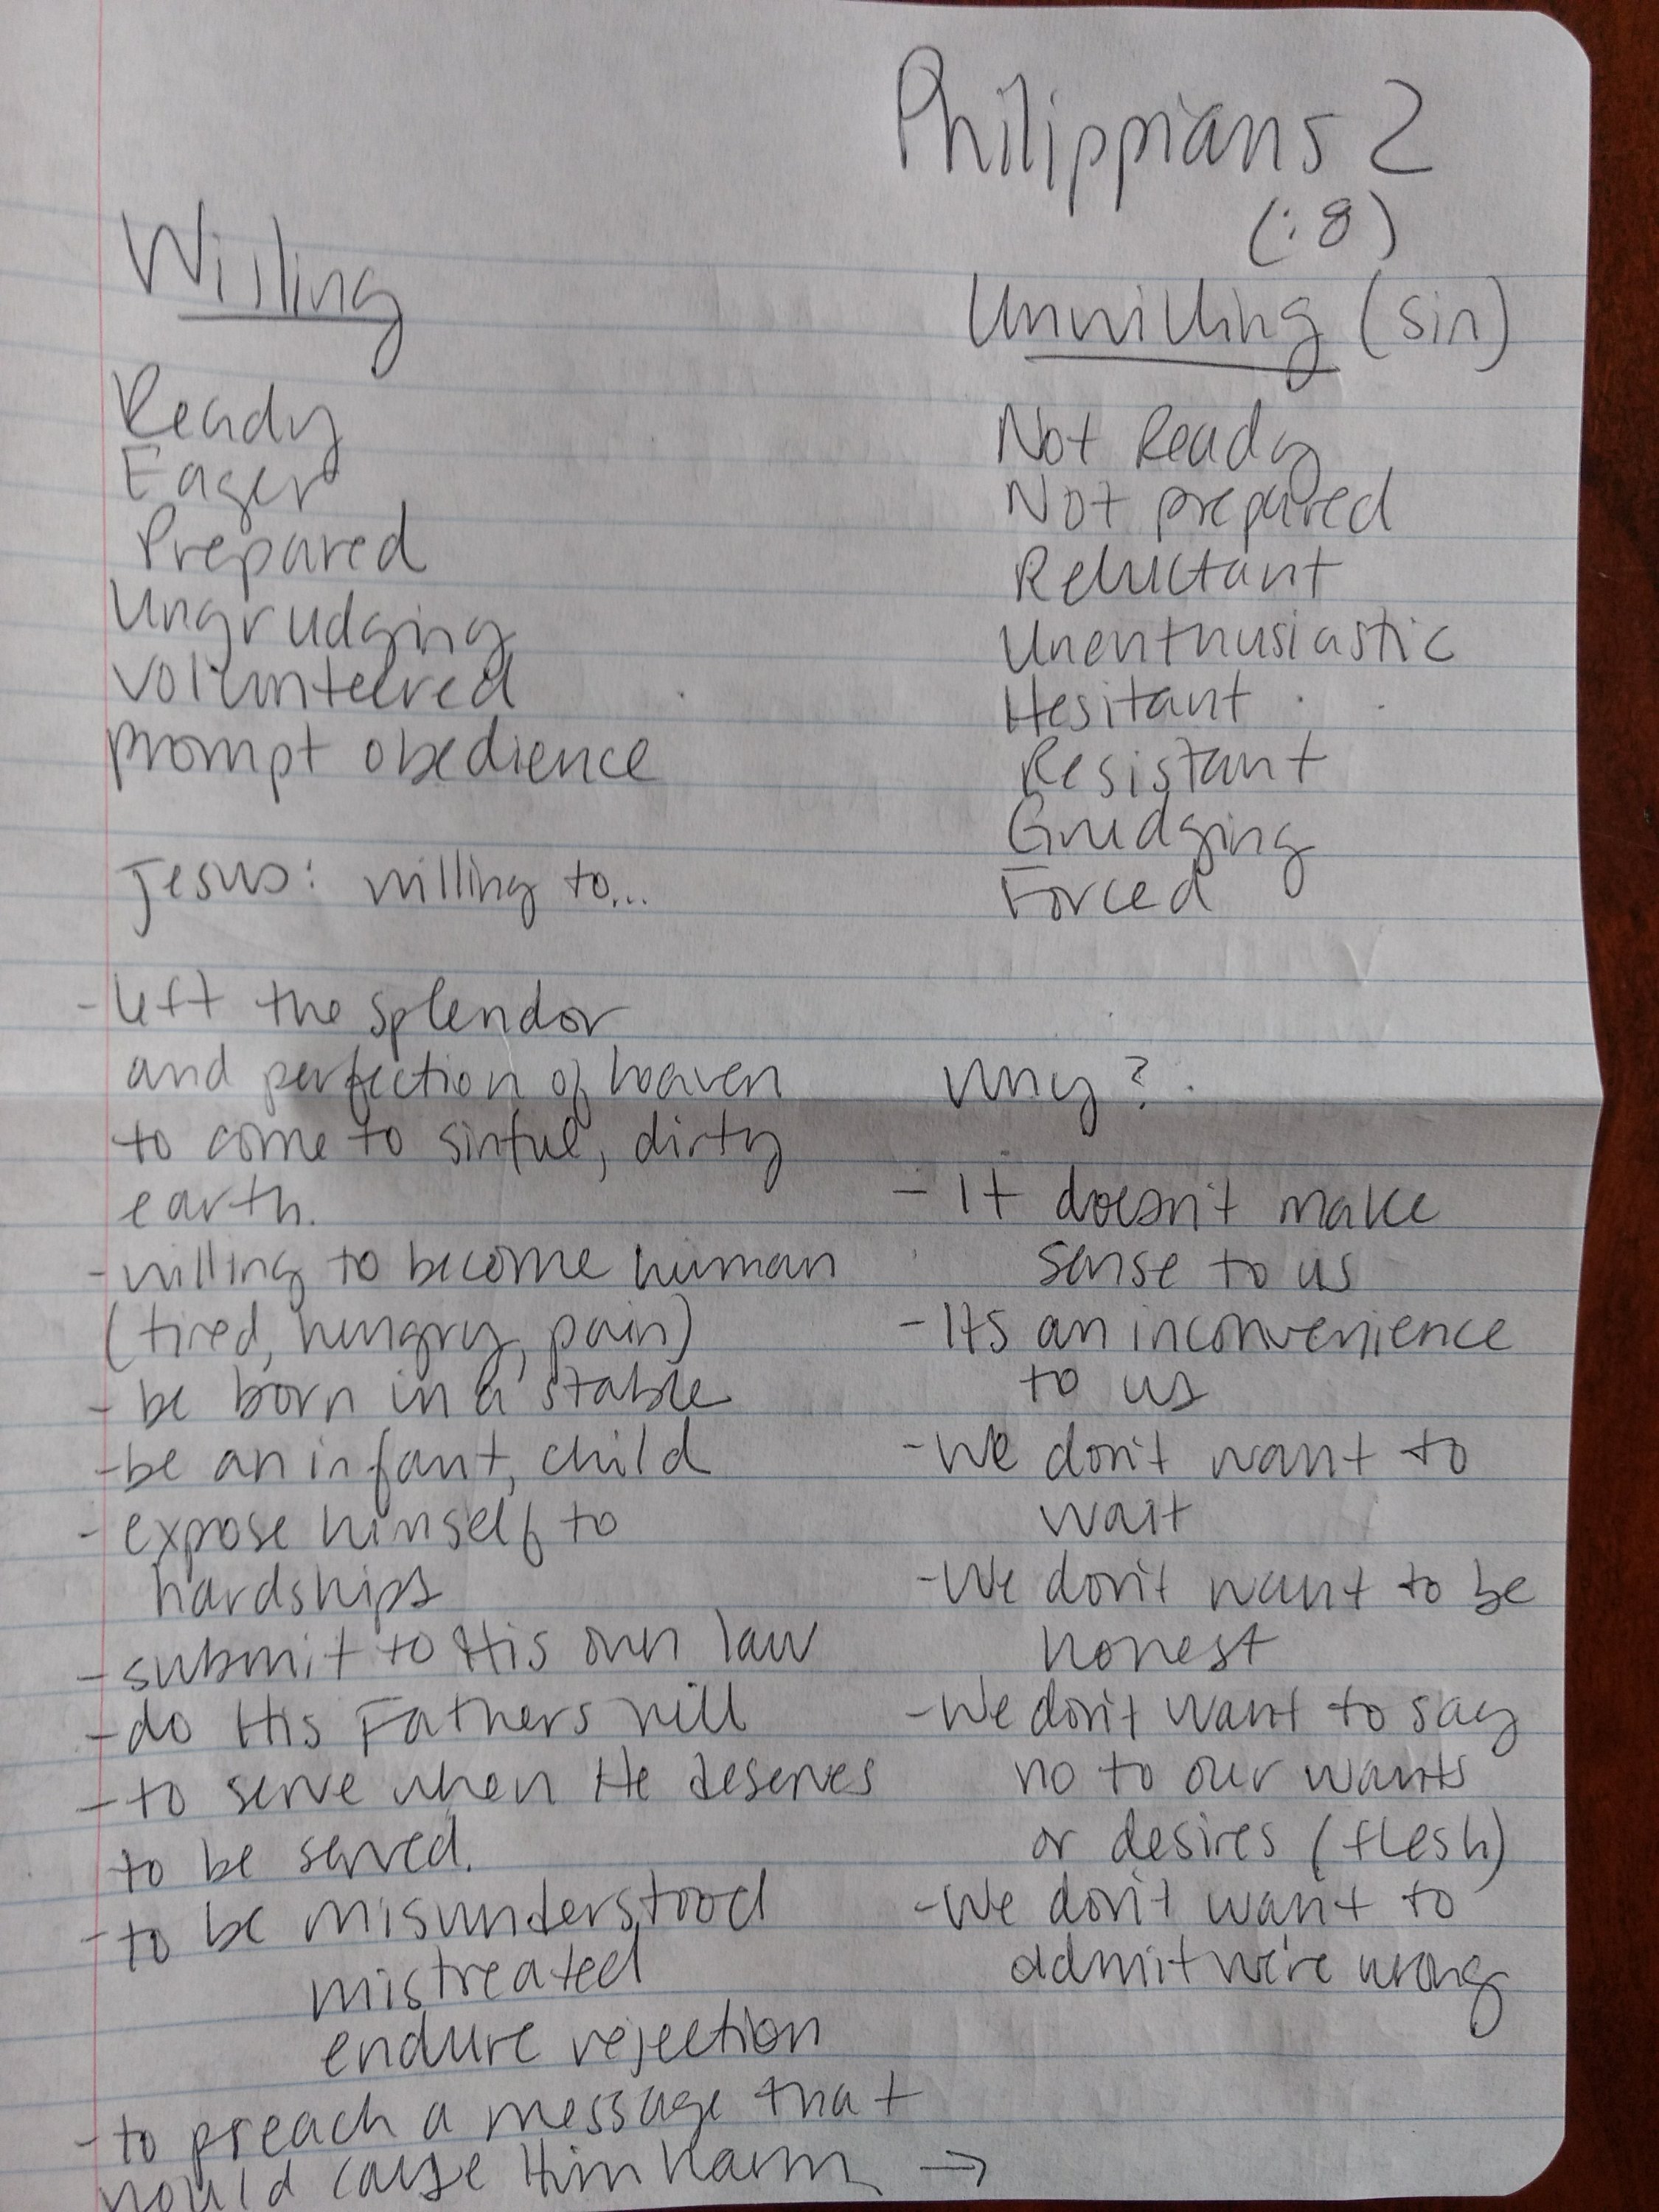 Philippians 2
(:8)
Willing
Ready
Eager
Prepared
Ungrudging
Volunteered
prompt obedience
Jesus: willing to...
- left the splendor
and perfection of heaven
to come to sinful, dirty
earth.
- willing to become human
(tired, hungry, pain)
- be born in a stable
- be an infant, child
- expose himself to
hardships
- submit to His own law
- do His Fathers will
- to serve when He deserves
to be served.
- to be misunderstood
mistreated
endure rejection
- to preach a message that
would cause Him harm →
Unwilling (sin)
Not Ready
Not prepared
Reluctant
Unenthusiastic
Hesitant
Resistant
Grudging
Forced
Why?
- It doesn't make
sense to us
- Its an inconvenience
to us
- We don't want to
wait
- We don't want to be
honest
- We don't want to say
no to our wants
or desires (flesh)
- We don't want to
admit we're wrong